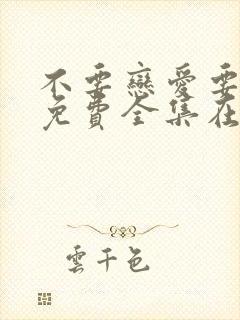 不要戀愛要
免費全集在
雲千色